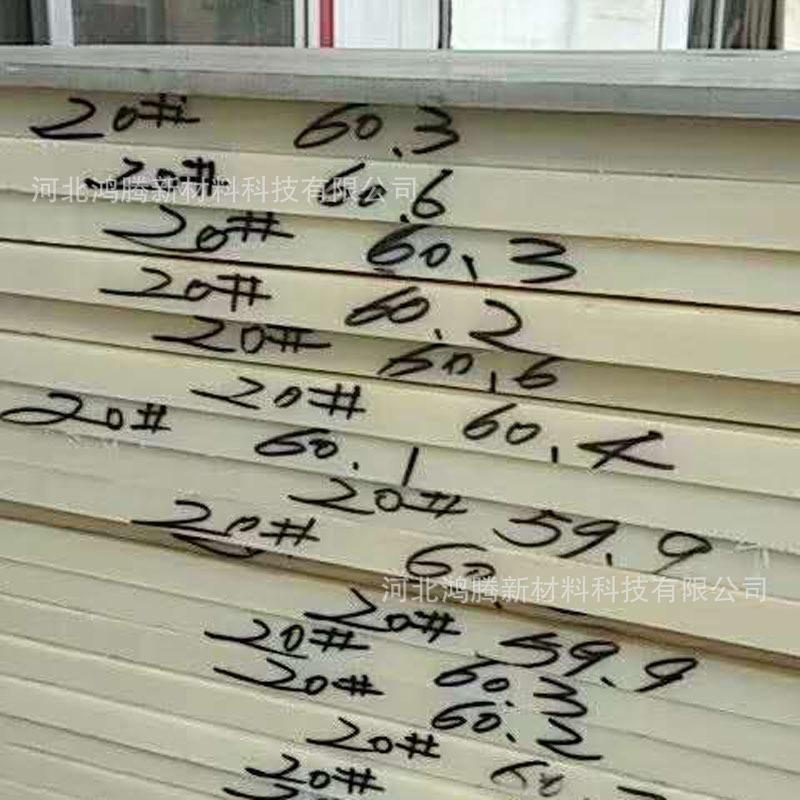 20# 60.3
20# 60.6
河北鸿腾新材料科技有限公司
20# 60.3
20# 60.2
20# 60.6
20# 60.4
20# 60.1
20# 59.9
20#
河北鸿腾新材料科技有限公司
20# 59.9
20# 60.3
20# 60.2
20#
20#